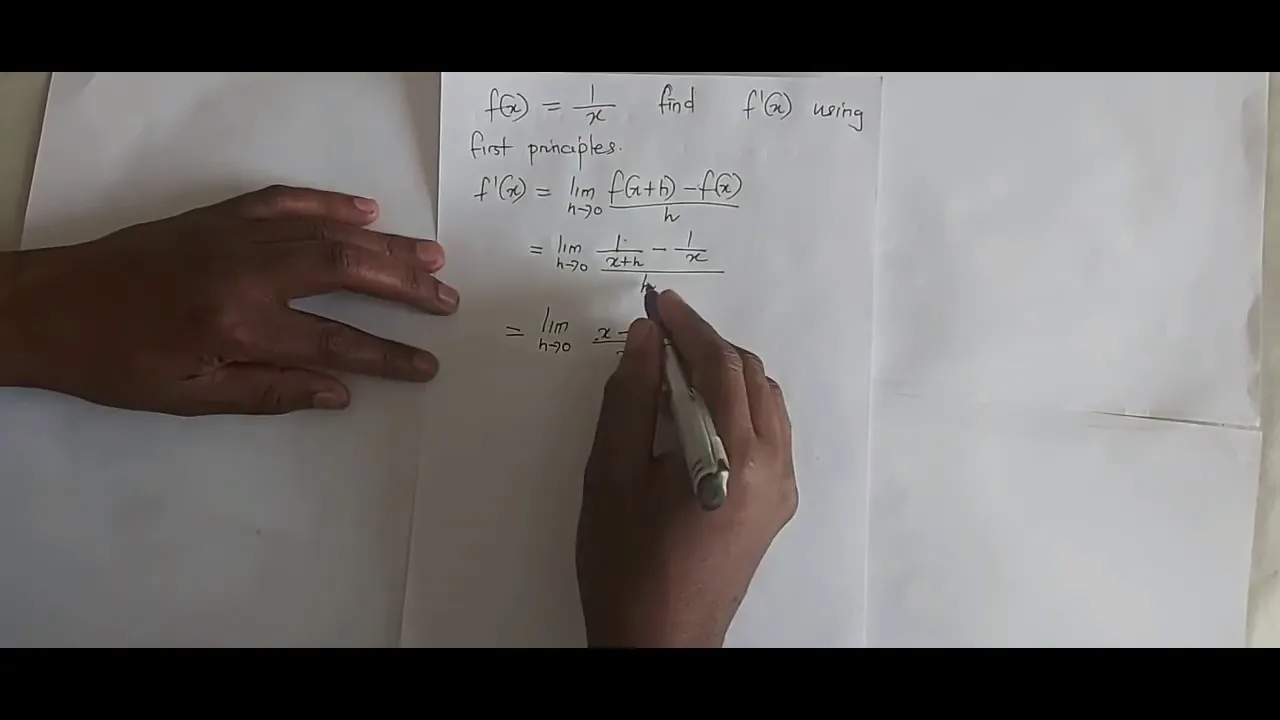 f(x) = 1/x find f'(x) using
first principles.
f'(x) = lim h→0 f(x+h) - f(x) / h
= lim h→0 1/x+h - 1/x / h
= lim h→0 x -